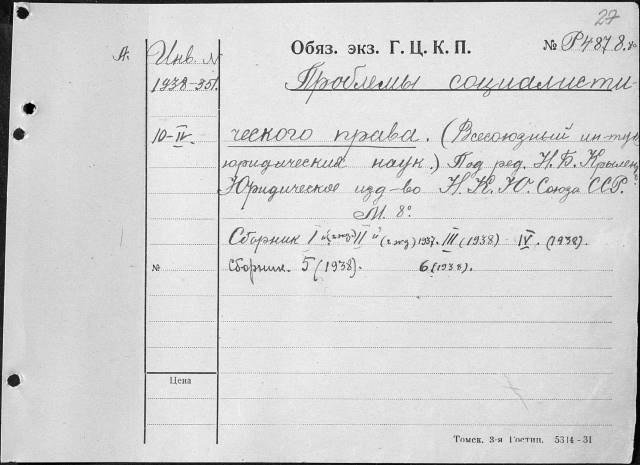 27
А. Инв. N Обяз. экз. Г. Ц. К. П. № Р4878
1938-351. Проблемы социалисти-
10-IV. ческого права. (Всесоюзный ин-т
юридических наук.) Под ред. Н. В. Крылен
Юридическое изд-во Н. К. Ю. Союза ССР.
М. 8°
Сборник I II 1937. III (1938) - IV. (1938).
№ Сборник. 5 (1938). 6 (1938).
Цена
Томск. 3-я Гостип. 5314-31